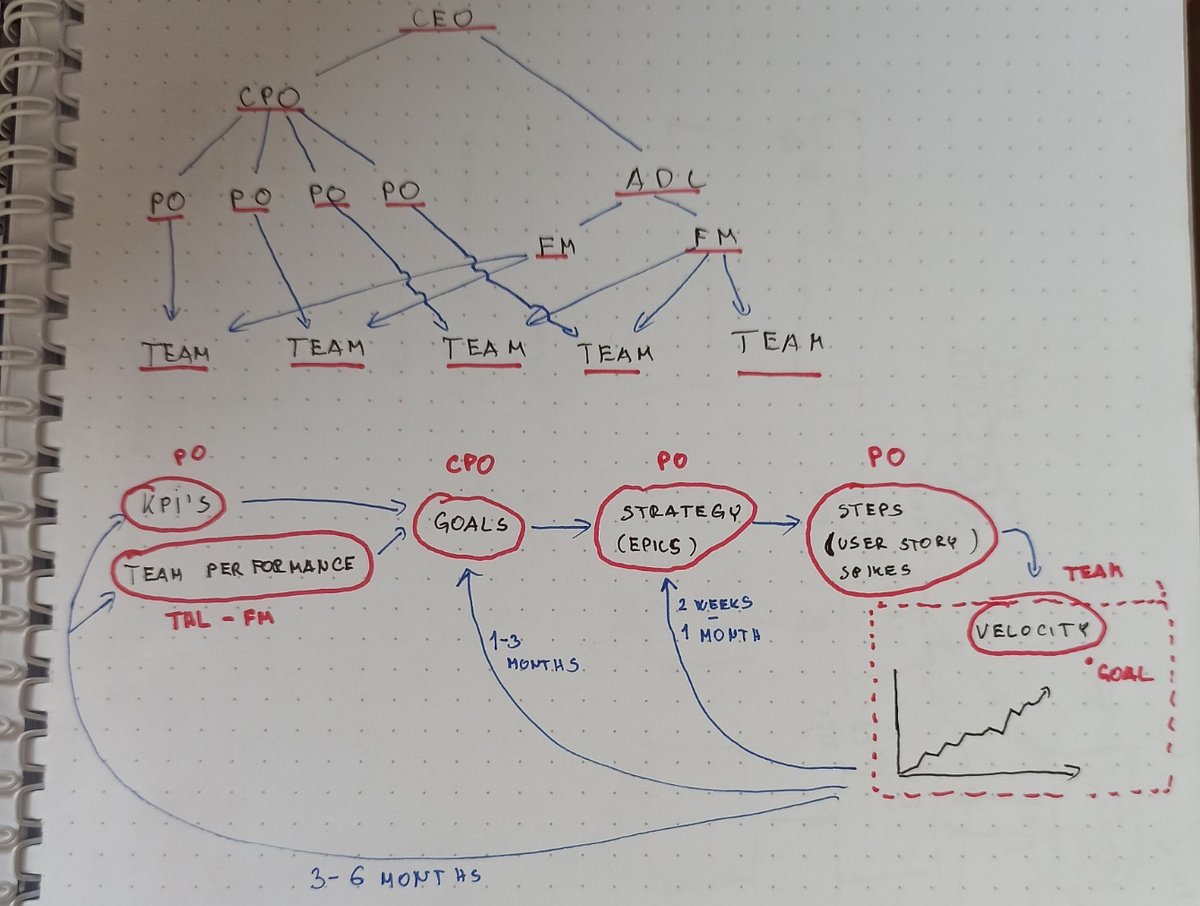 CEO
CPO
PO PO PO PO
ADL
FM FM
TEAM TEAM TEAM TEAM TEAM
PO
CPO
PO
PO
KPi'S
GOALS
STRATEGY
(EPICS)
STEPS
(USER STORY)
SPIKES
TEAM PERFORMANCE
TAL - FM
TEAM
VELOCITY
GOAL
1-3
MONTHS
2 WEEKS
1 MONTH
3-6 MONTHS